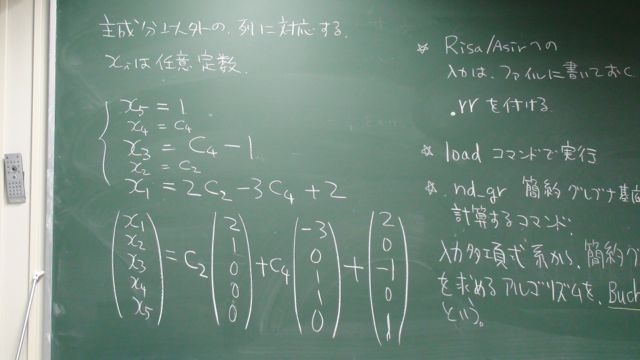 主成分以外の、列に対応する、
xᵢは任意定数.
x₅ = 1
x₄ = C₄
x₃ = C₄ - 1
x₂ = C₂
x₁ = 2C₂ - 3C₄ + 2
(x₁ x₂ x₃ x₄ x₅) = C₂ (2 1 0 0 0) + C₄ (-3 0 1 1 0) + (2 0 -1 0 1)
☆ Risa/Asirへの
入力は、ファイルに書いておく
.rr を付ける
☆ load コマンドで実行
☆ nd_gr 簡約グレブナ基底
計算するコマンド.
入力多項式系から、簡約グ
を求めるアルゴリズムを、Buch
という。